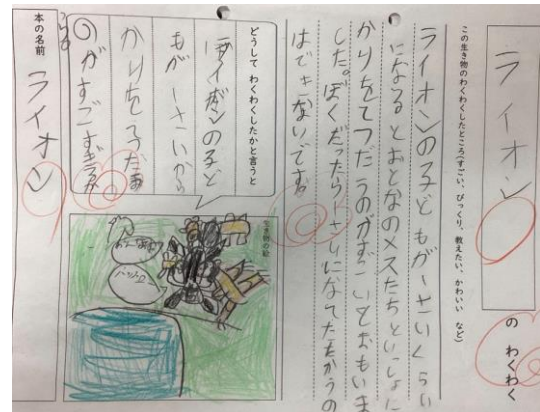 ライオン
の わくわく
この生き物のわくわくしたところ(すごい、びっくり、教えたい、かわいい など)
ライオンの子どもが一さいくらい
になるとおとなのメスたちといっしょに
かりをてつだうのがすごいとおもいま
した。ぼくだったら一さいになてたたかうの
はできないです。
どうして わくわくしたかと言うと
ライオンの子ど
もが一さいから
かりをころだあ
のがすごすぎるから
生き物の絵
本の名前
ライオン